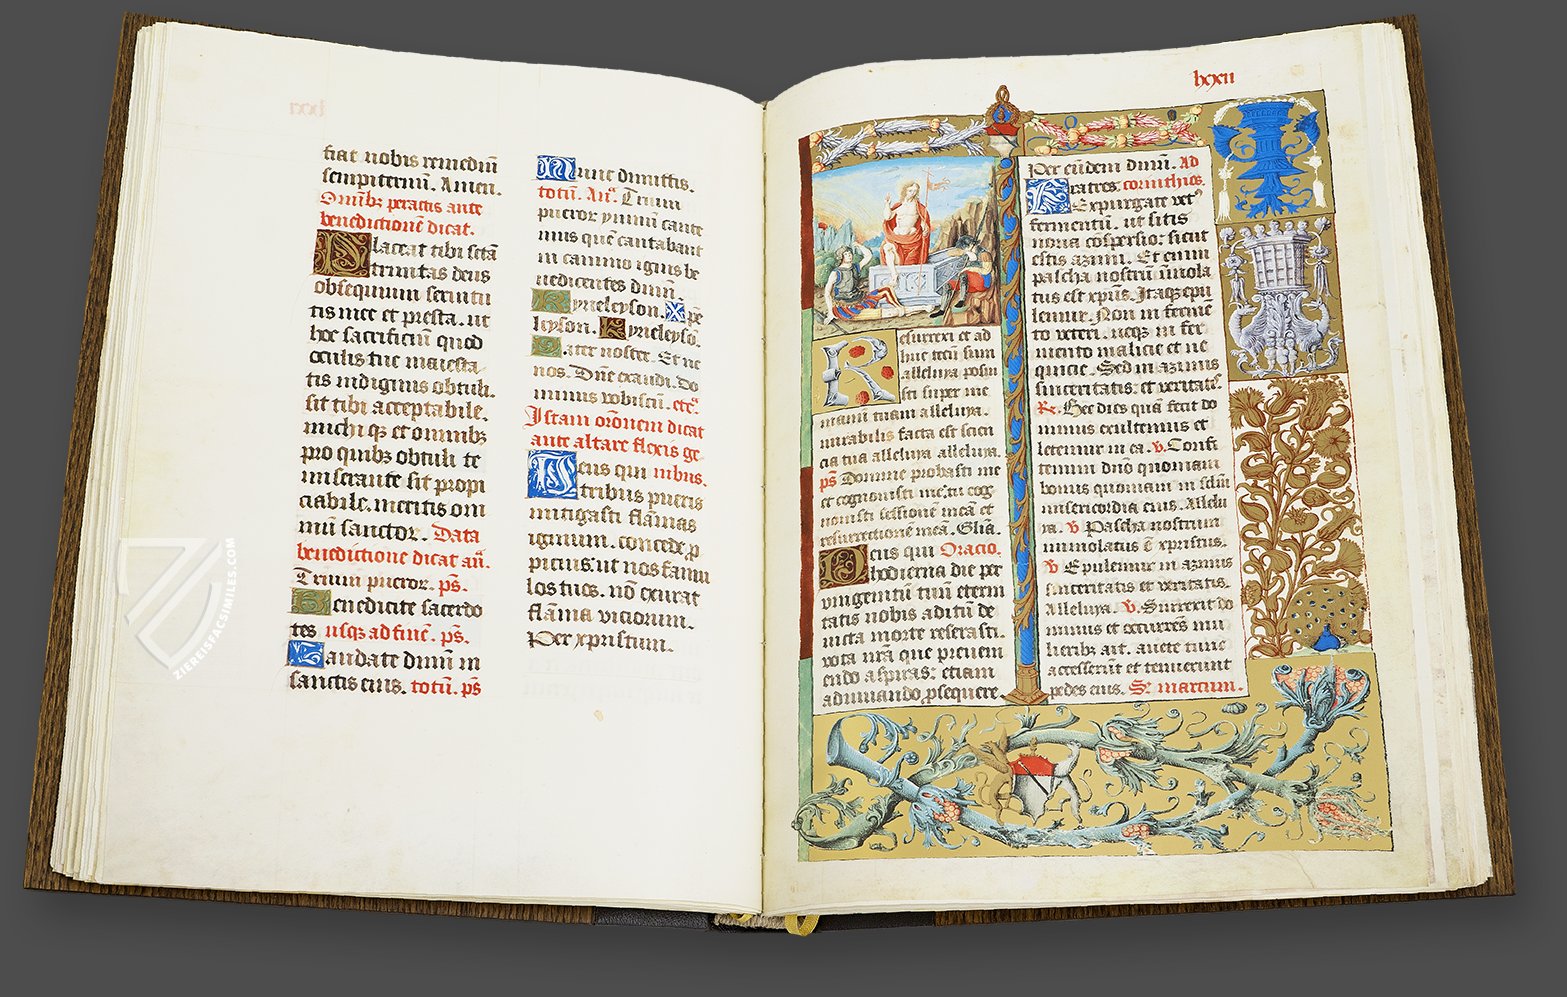 fiat nobis remediū
sempiternū. Amen.
Omībꝫ peractis ante
benedictionē dicat.
Placeat tibi sctā
trinitas deus
obsequium seruitu
tis mee et presta. ut
hoc sacrificiū quod
oculis tue maiesta
tis indignus obtuli.
sit tibi acceptabile.
michi qꝫ et omnibꝫ
pro quibꝫ obtuli te
miserante sit propi
ciabile. meritis om
niū sanctoꝝ. Data
benedictione dicat añ.
Trium pueroꝝ. ps.
Benedicite sacerdo
tes usqꝫ ad finē. ps.
Laudate dnm̄ in
sanctis eius. totū. ps
Nunc dimittis.
totū. An. Trium
pueroꝝ ymnū cante
mus quē cantabant
in camino ignis be
nedicentes dnm̄.
Kyrieleyson. Xpe
leyson. Kyrieleysō.
Pater noster. Et ne
nos. Dn̄e exaudi. do
minus vobiscū. etc.
Istam orōnem dicat
ante altare flexis ge
Deus qui nibus.
tribus pueris
mitigasti flāmas
ignium. concede p
picius. ut nos famu
los tuos. nō exurat
flāma viciorum.
Per xpristum.
lxxii
Resurrexi et ad
huc tecū sum
alleluya posui
sti super me
manū tuam alleluya.
mirabilis facta est scien
cia tua alleluya. alleluya.
ps Domine probasti me
et cognouisti me: tu cog
nouisti sessionē meā et
resurrectionē meā. Glīa.
Deus qui Oracio.
hodierna die per
vnigenitū tuū eterni
tatis nobis aditū de
uicta morte reserasti.
vota nr̄a que preueni
endo aspiras: etiam
adiuuando prosequere
Per eūdem dnm̄. Ad
Fratres corinthios.
Expurgate vet
fermentū. ut sitis
noua cōspersio: sicut
estis azimi. Et enim
pascha nostrū īmola
tus est xp̄us. Itaqꝫ epu
lemur. Non in fermē
to veteri. neqꝫ in fer
mento malicie et ne
quicie. Sed in azimis
sinceritatis et veritatꝭ.
Re. Hec dies quā fecit do
minus exultemus et
letemur in ea. v. Confi
temini dnō quoniam
bonus quoniam in sclm̄
misericordia eius. Allelu
ya. v Pascha nostrum
immolatus ē xpristus.
v Epulemur in azimis
sinceritatis et veritatis.
Alleluya. v. Surrexit do
minus et occurrēs mu
lieribꝫ ait. auete tunc
accesserūt et tenuerunt
pedes eius. S. marcum.
ZIEREISFACSIMILES.COM